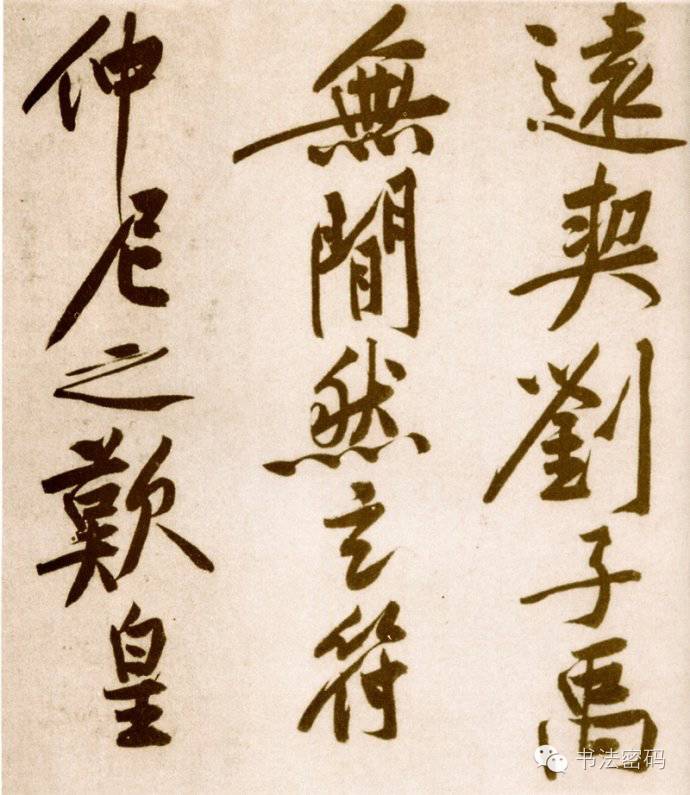 遠契劉子禹
無閒然玄符
仲尼之歎皇
书法密码